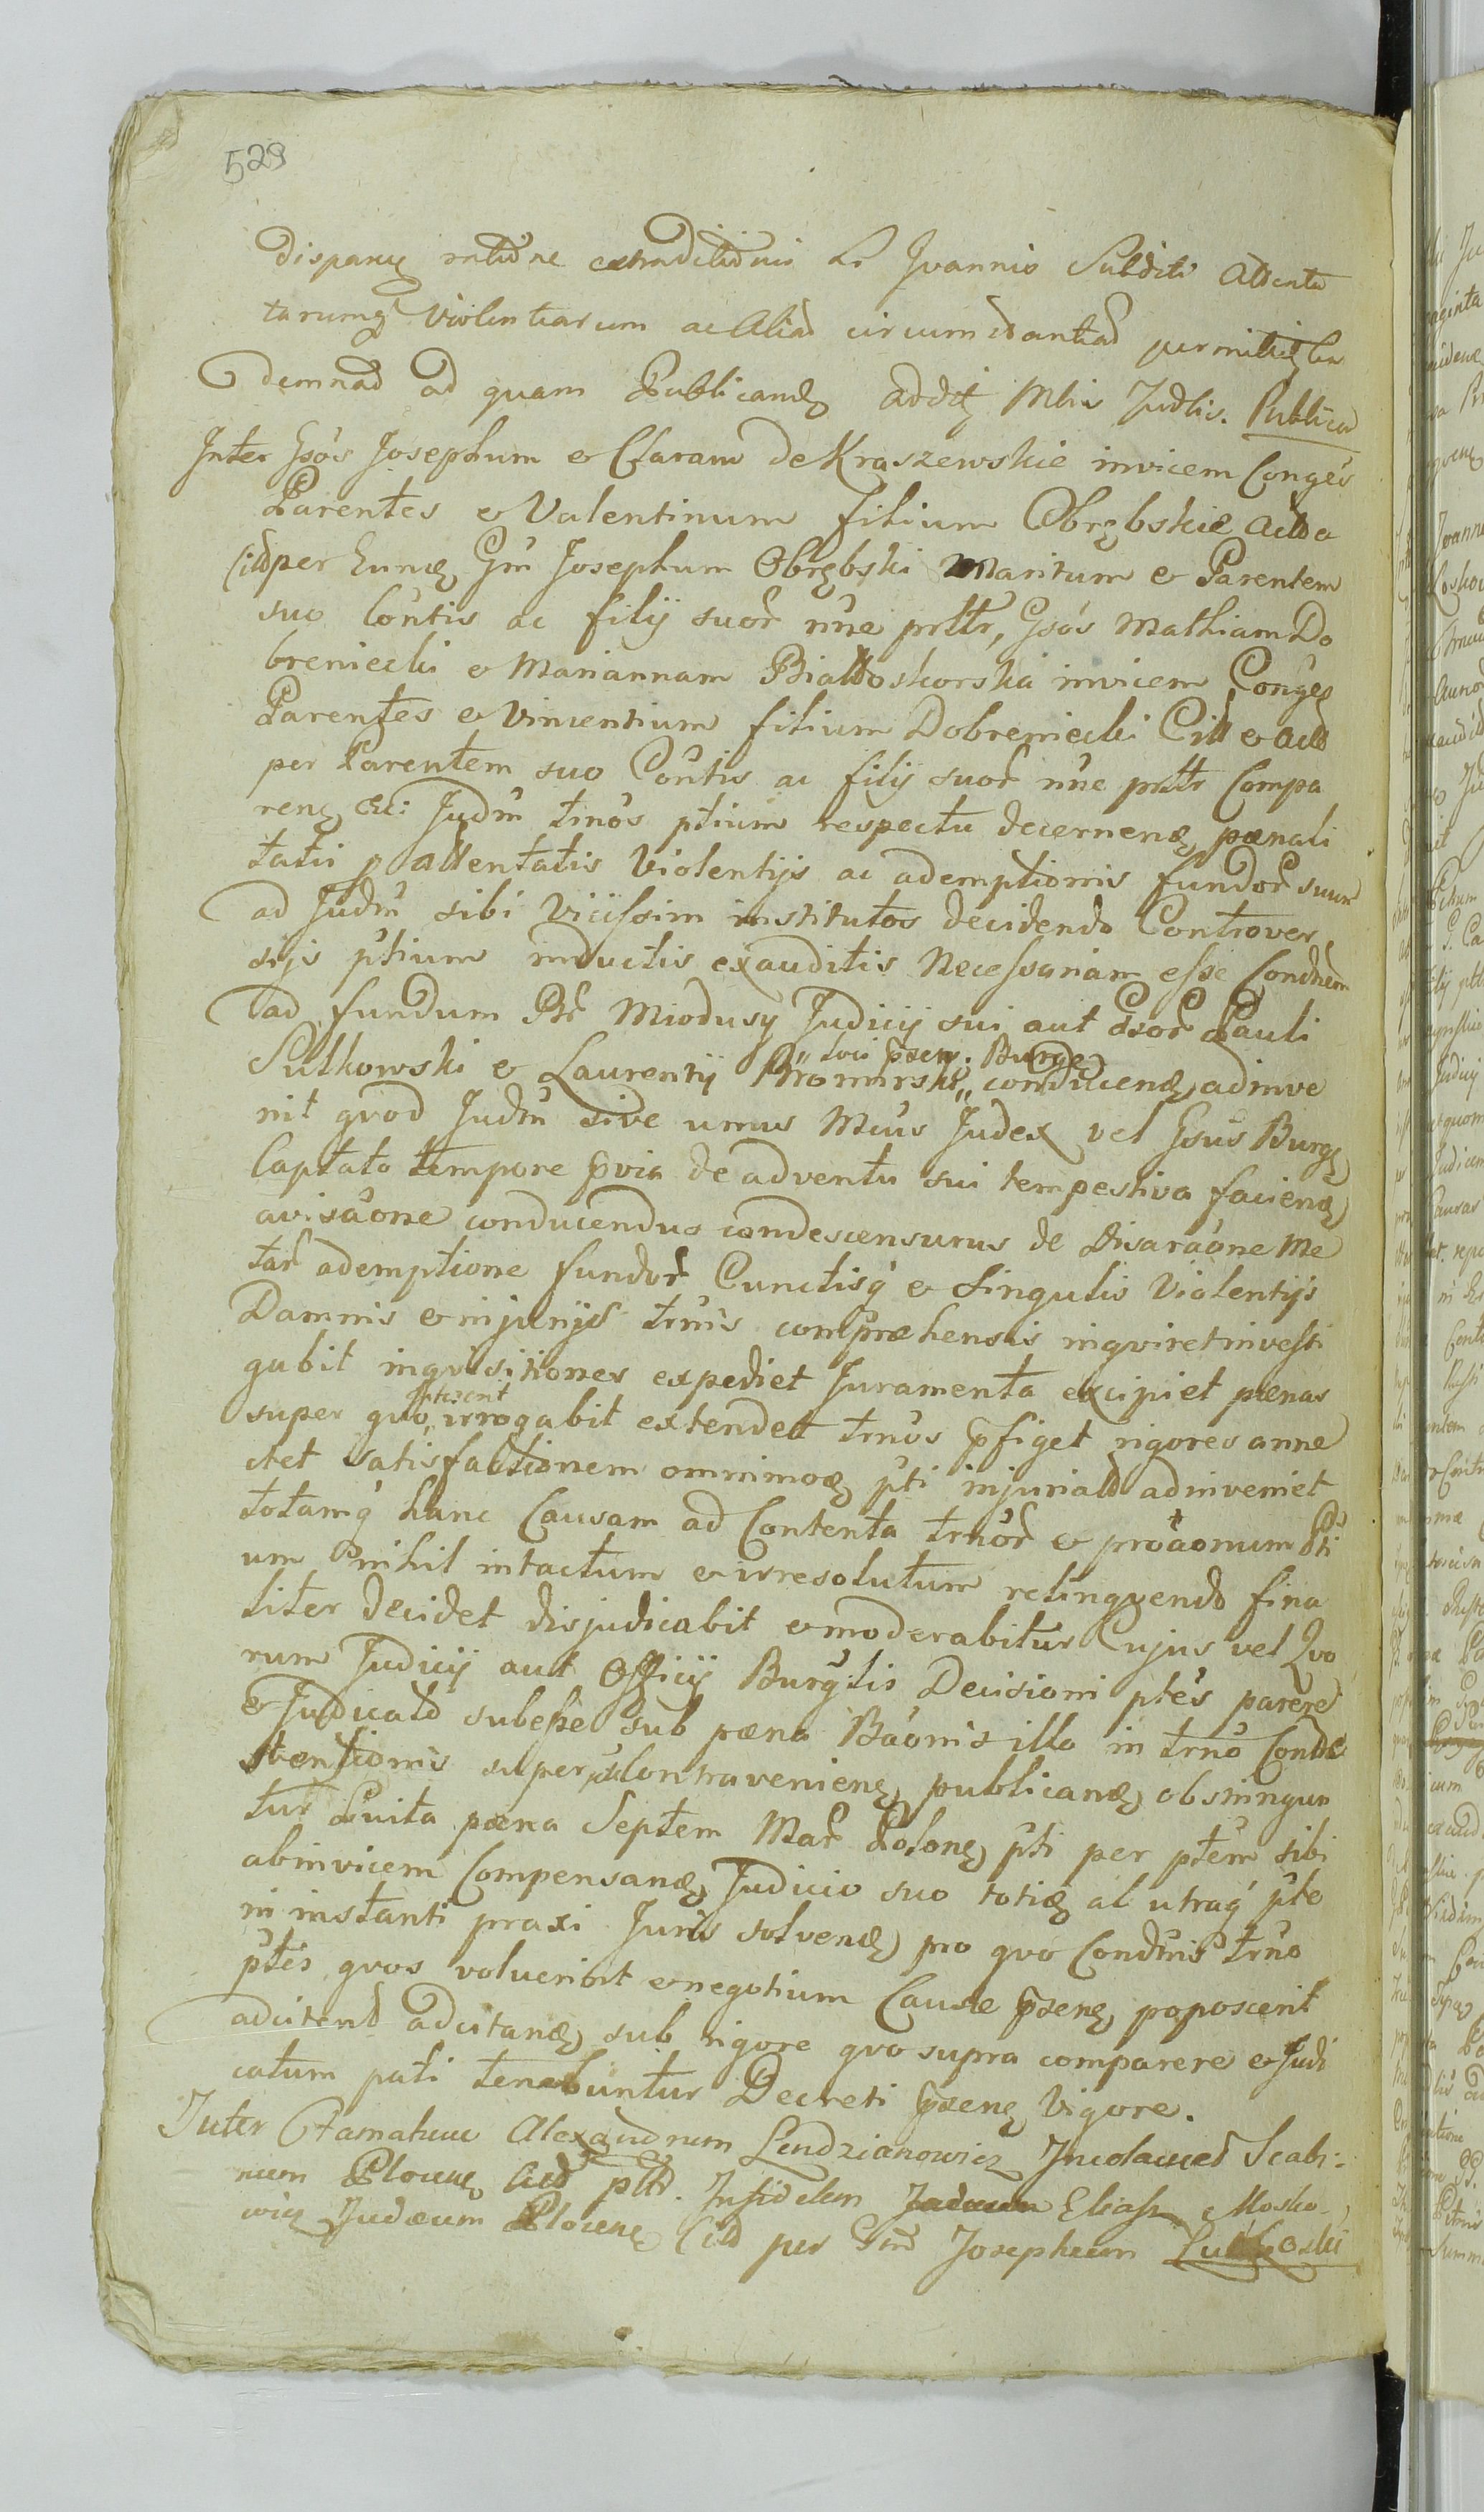 529
dispang ratione extraditionis Lr Joannis Subditi attenta
tarumq violentiarum ac Alias circumstantias permittit Con
demnad ad quam Publicand addit Mtrm Judlis. Publica
Inter Gsos Josephum et Claram de Kraszewskie invicem Conges
Parentes et Valentinum filium Obrębskie Actto
Citt per Eunq Gm Josephum Obrębski Maritum et Parentem
suo Contis ac filij suor nne prttr, Gsos Mathiam Do
breniecki et Mariannam Białłoskorska invicem Conges
Parentes et Vincentium filium Dobreniecki Citt et Actt
per Parentem suo Contis ac filij suor nne prttr Compa
reng Etc: Judm tmos ptium respectu decernenq pœnali
tatis p attentatis Violentijs ac ademptionis fundor suum
ad Judm sibi Vicissim institutos decidendo Controver
sijs ptium inductis exauditis Necessariam esse Condnem
ad fundum Br Miodusy Judicij sui aut Gsor Pauli
loci psen. Burg
Sulkowski et Laurentij Bromirski conducenq, adinve
nit qvod Judm sive unus Meus Judex vel Gsus Burg
Captato tempore pvia de adventu sui tempestiva facienq
avisaone conducendus condescensurus de Disaraone Me
tar ademptione fundor Cunctisq et Singulis Violentijs
Damnis et injurijs trnis compræhensis inqviret investi
gabit inqvisitiones expediet Juramenta excipiet pœnas
intererit
super qvo, irrogabit extendet trnos pfiget rigores anne
ctet satisfactionem omnimoq pti injuriatt adinveniet
totamq hanc Causam ad Contenta trnor et proaonum Pti
um nihil intactum et irresolutum relinqvendo fina
liter decidet disjudicabit et moderabitur Cujus vel Qvo
rum Judicij aut Officij Burglis Decisioni ptes parere
et Judicatd subesse sub pœna Baonis illo in trno Conde
stensionis super Contravenienq, publicanq, obstringun
tur Luita pœna Septem Mar Polonq, pti per ptem sibi
abinvicem Compensanq, Judicio suo totiq al utraq pte
in instanti praxi Juris solvenq, pro qvo Condnis trno
ptes qvos voluerint et negotium Causæ psenq, poposcerit
adcitend adcitanq, sub rigore qvo supra comparere et Judi
catum pati tenebuntur Decreti psenq Vigore.
Inter Famatum Alexandrum Lendzianowicz Incolamed Scabi:
num Plocenq Actt pttr. Infidelem Eliasz Mosko-
wicz Judæum Plocenq Citt per Gm Josephum Lutoski